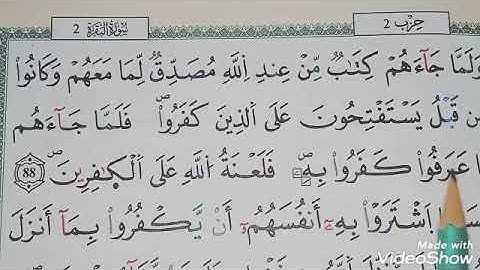 حِزْب 2
سُورَةُ الْبَقَرَةِ 2
وَلَمَّا جَآءَهُمْ كِتَٰبٌ مِّنْ عِندِ اِ۬للَّهِ مُصَدِّقٌ لِّمَا مَعَهُمْ وَكَانُواْ
مِن قَبْلُ يَسْتَفْتِحُونَ عَلَى اَ۬لذِينَ كَفَرُواْ فَلَمَّا جَآءَهُم
عَرَفُواْ كَفَرُواْ بِهِۦ فَلَعْنَةُ اُ۬للَّهِ عَلَى اَ۬لْكٰ۪فِرِينَ 88
اَ۪شْتَرَوْاْ بِهِۦٓ أَنفُسَهُمُۥٓ أَنْ يَّكْفُرُواْ بِمَآ أَنزَلَ
Made with
VideoShow